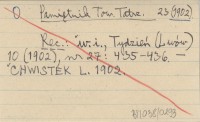 O Pamiętnik Tow. Tatrz. 23 (1902)
Rec.: w.i., Tydzień (Lwów)
10 (1902), nr 27: 435-436.
CHWISTEK L. 1902.